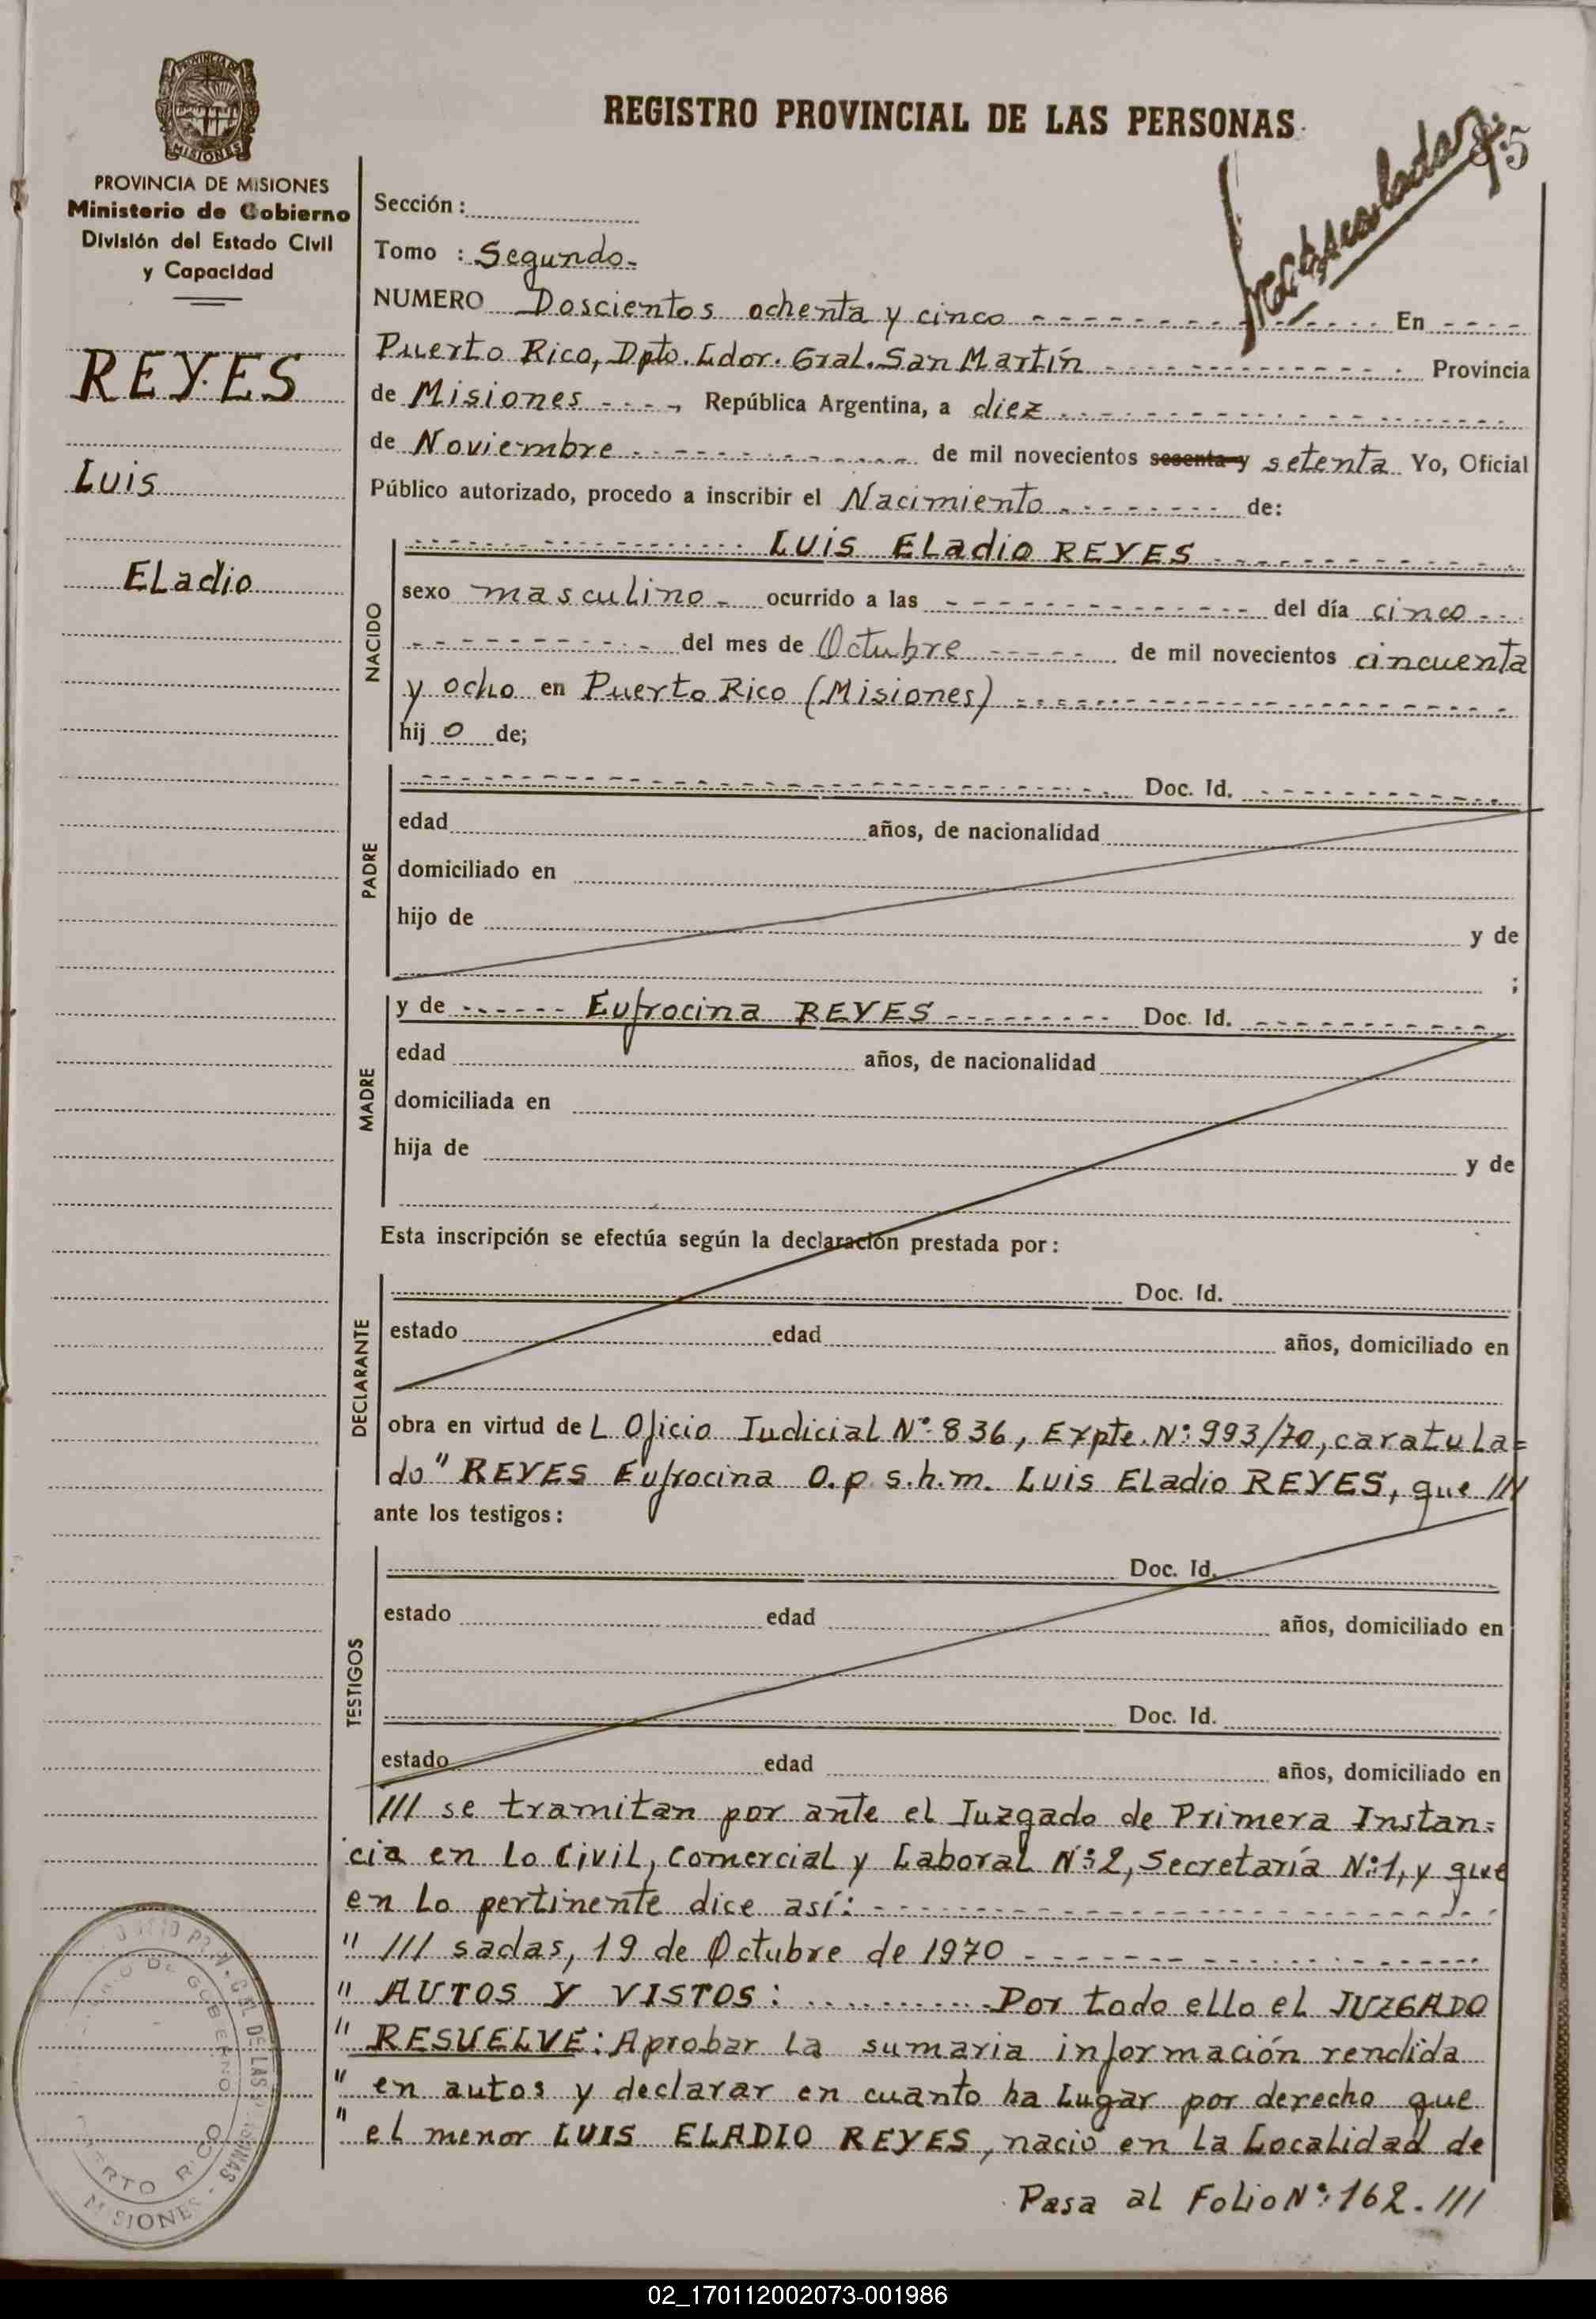 REGISTRO PROVINCIAL DE LAS PERSONAS
85
PROVINCIA DE MISIONES
MISIONES
PROVINCIA DE MISIONES
Ministerio de Gobierno
División del Estado Civil
y Capacidad
REYES
Luis
Eladio
Sección :
Tomo : Segundo.
NUMERO Doscientos ochenta y cinco En
Puerto Rico, Dpto. Ldor. Gral. San Martín Provincia
de Misiones , República Argentina, a diez
de Noviembre de mil novecientos sesenta y setenta Yo, Oficial
Público autorizado, procedo a inscribir el Nacimiento de:
NACIDO
LUIS ELadio REYES
sexo masculino ocurrido a las del día cinco
del mes de Octubre de mil novecientos cincuenta
y ocho en Puerto Rico (Misiones)
hij o de;
PADRE
Doc. Id.
edad años, de nacionalidad
domiciliado en
hijo de y de
;
MADRE
y de Eufrocina REYES Doc. Id.
edad años, de nacionalidad
domiciliada en
hija de y de
Esta inscripción se efectúa según la declaración prestada por :
DECLARANTE
Doc. Id.
estado edad años, domiciliado en
obra en virtud de L Oficio Judicial Nº 836, Expte. Nº 993/70, caratula=
do " REYES Eufrocina O.p.s.h.m. Luis ELadio REYES, que ///
ante los testigos :
TESTIGOS
Doc. Id.
estado edad años, domiciliado en
Doc. Id.
estado edad años, domiciliado en
/// se tramitan por ante el Juzgado de Primera Instan=
cia en lo Civil, Comercial y Laboral Nº 2, Secretaría Nº 1, y que
en lo pertinente dice así:
" /// sadas, 19 de Octubre de 1970
" AUTOS Y VISTOS: .......... Por todo ello el JUZGADO
" RESUELVE: Aprobar la sumaria información rendida
" en autos y declarar en cuanto ha lugar por derecho que
" el menor LUIS ELADIO REYES, nació en la Localidad de
Pasa al Folio Nº 162. ///
PUERTO RICO
MISIONES
02_170112002073-001986